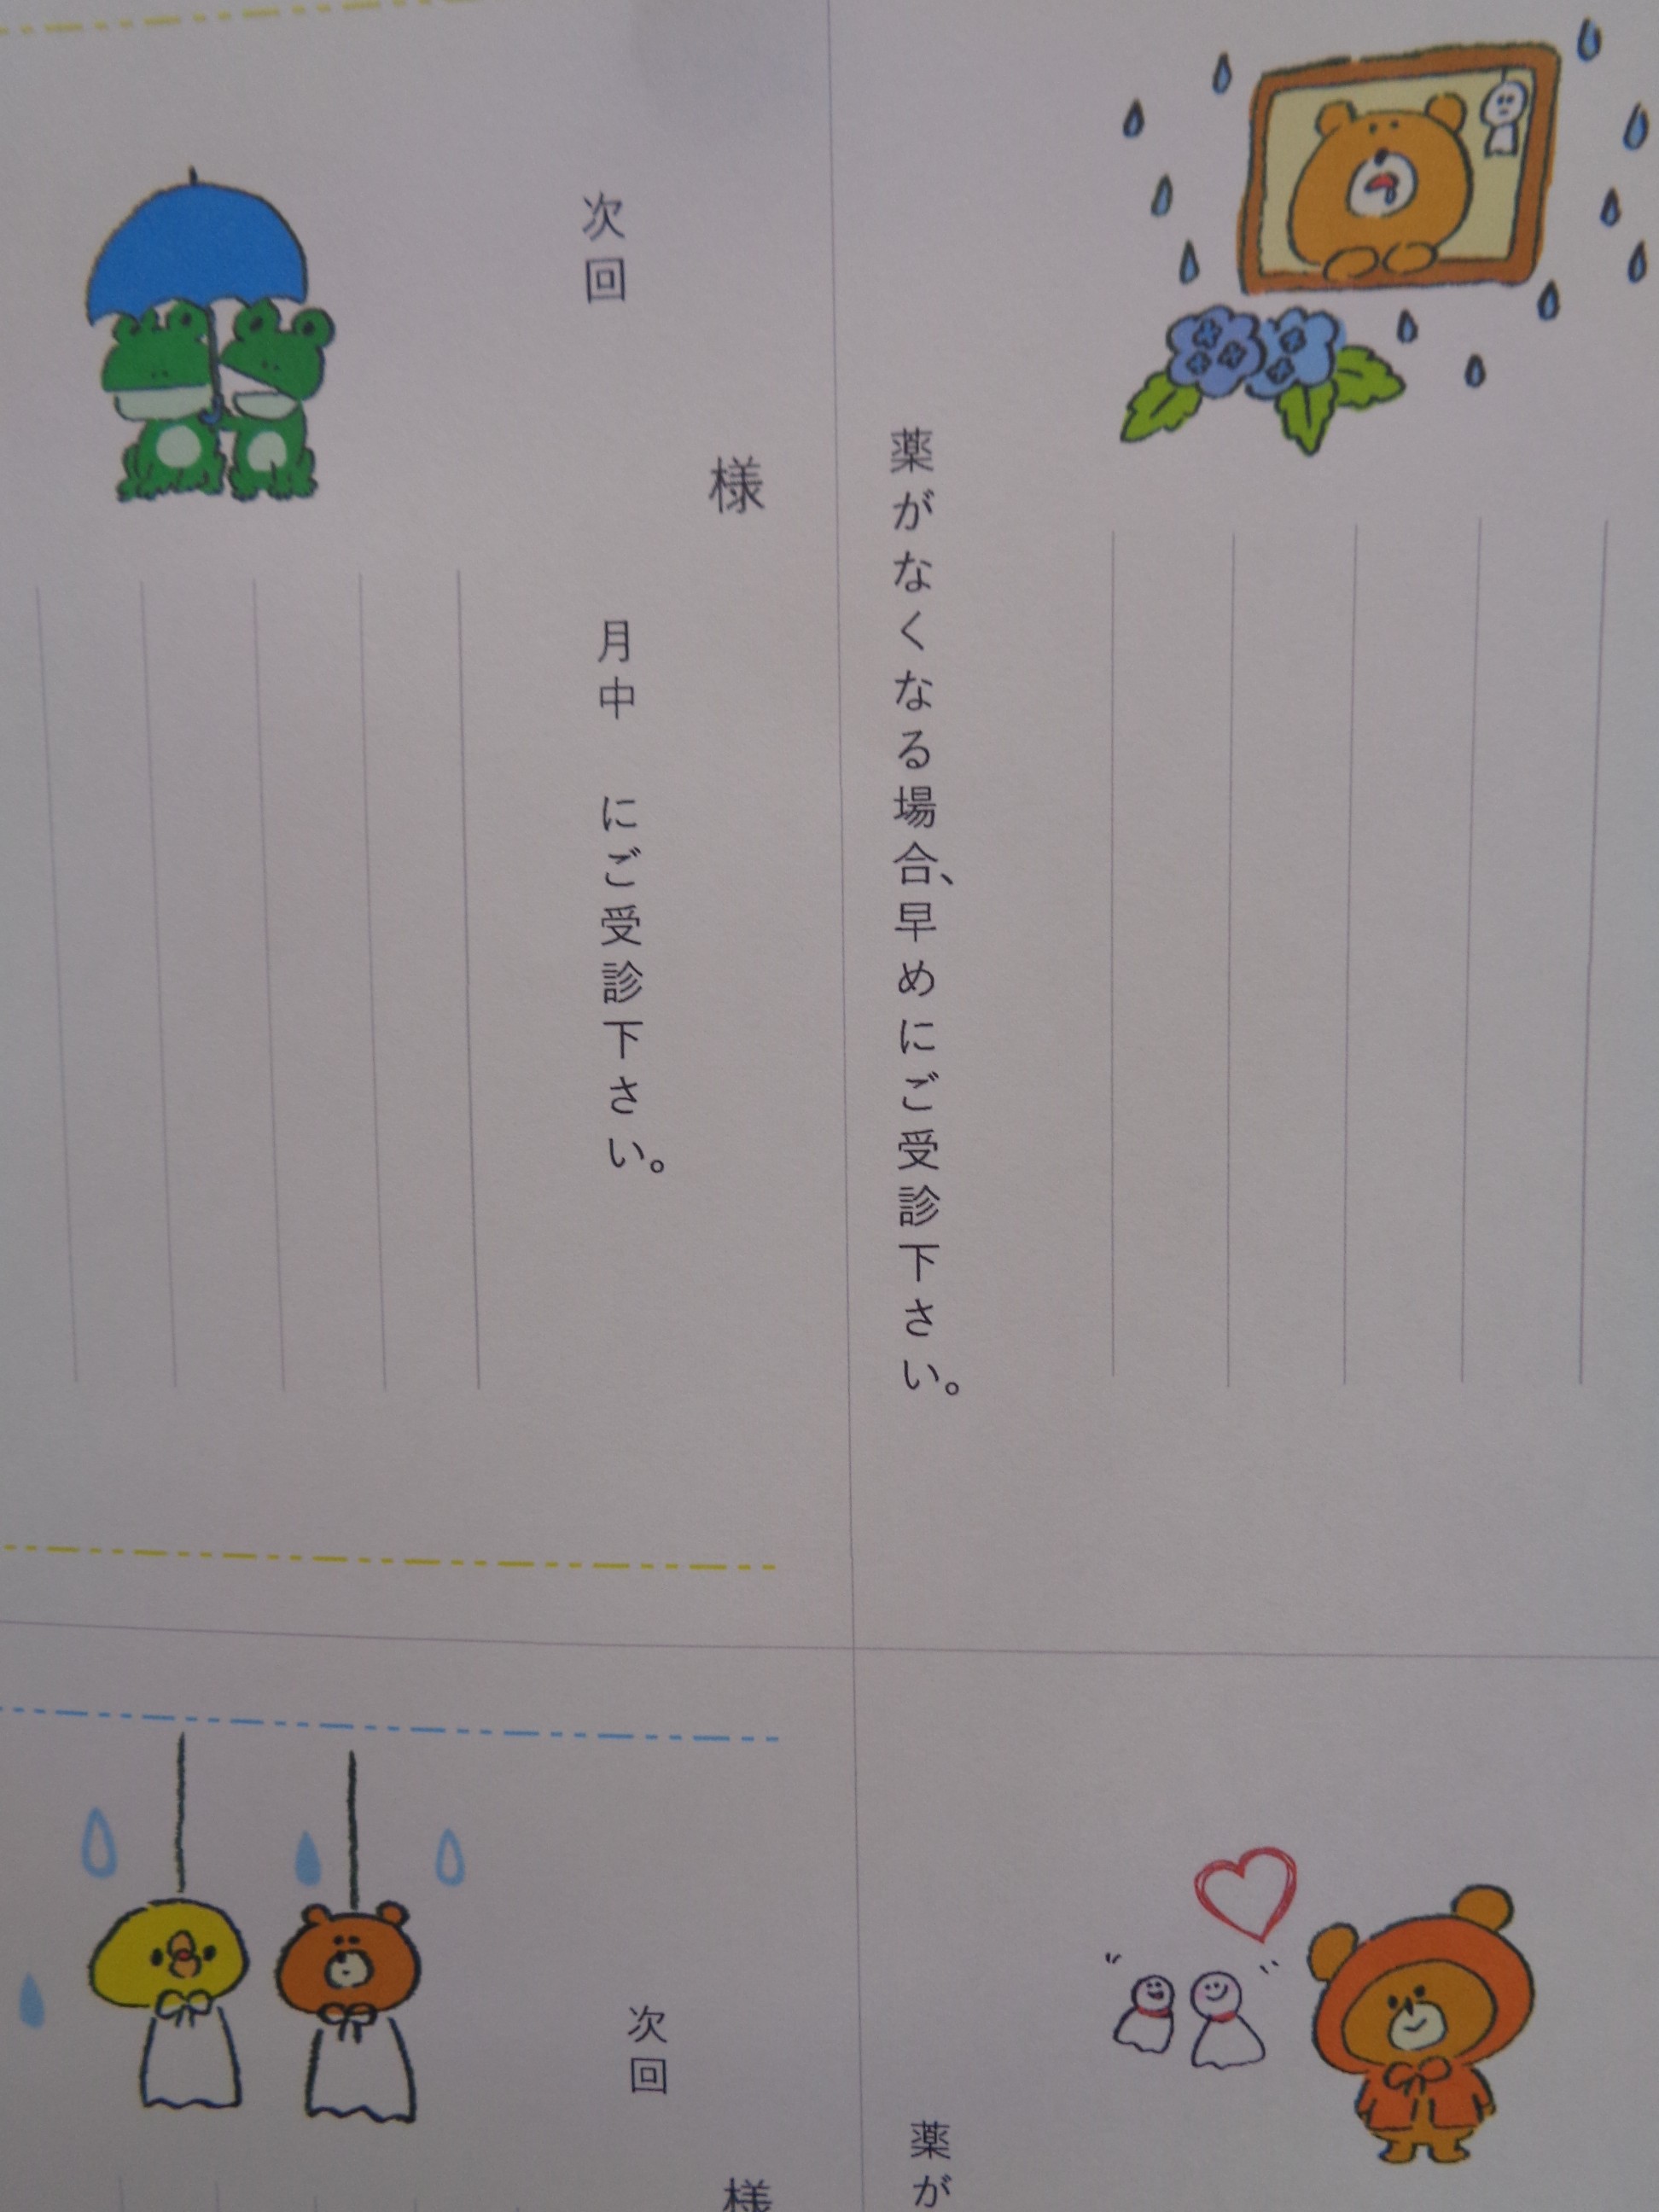 薬がなくなる場合、早めにご受診下さい。
様
次回　月中　にご受診下さい。
薬が
様
次回